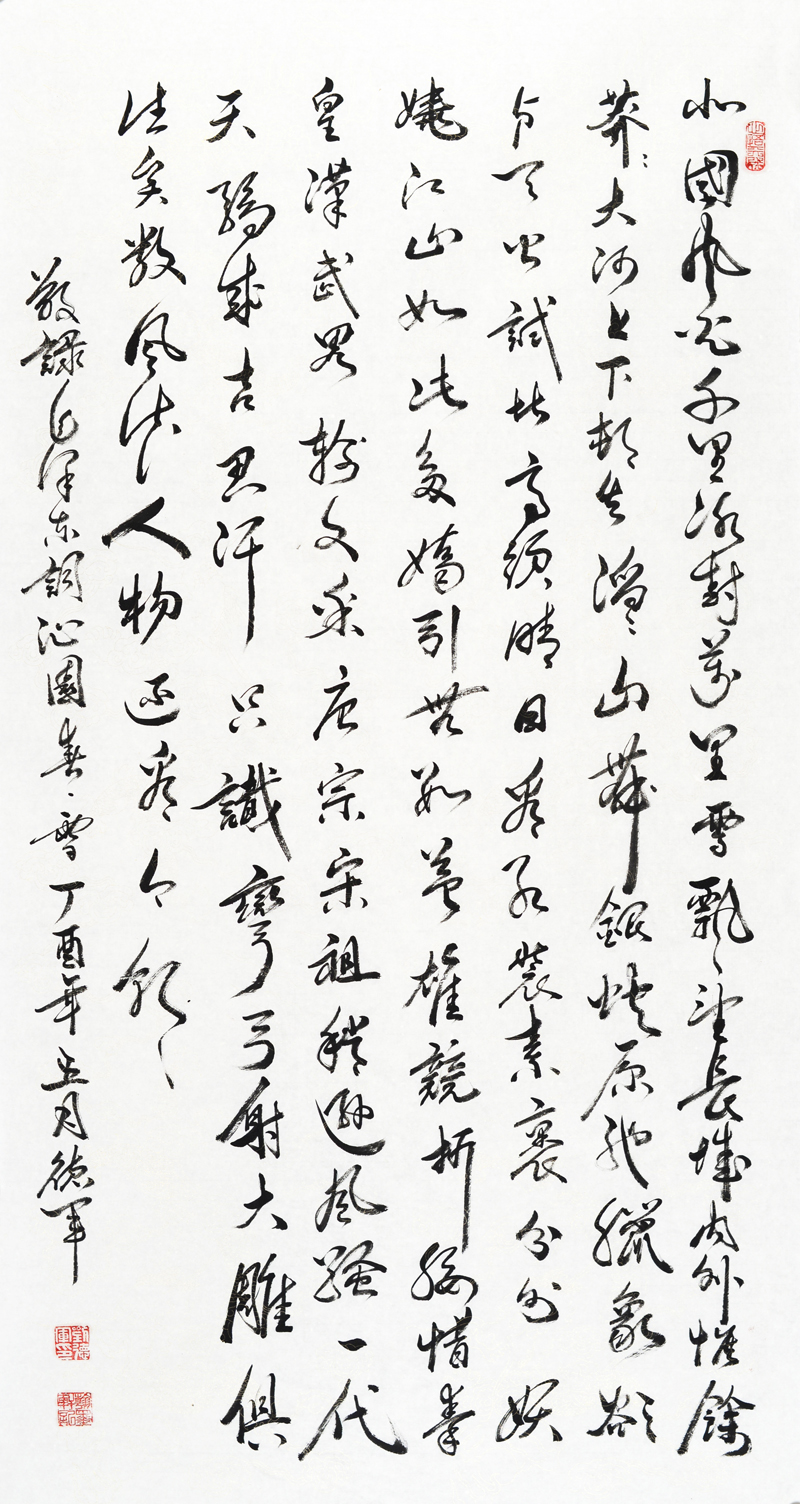 北國風光千里冰封萬里雪飄、望長城內外惟餘
莽〻大河上下頓失滔〻山舞銀蛇原馳臘象欲
与天公試比高須晴日看紅裝素裹分外妖
嬈江山如此多嬌引無數英雄競折腰惜秦
皇漢武略輸文采唐宗宋祖稍遜風騷一代
天驕成吉思汗只識彎弓射大雕俱
往矣数風流人物還看今朝、
敬錄毛澤東詞沁園春、雪丁酉年五月德軍
劉德軍印